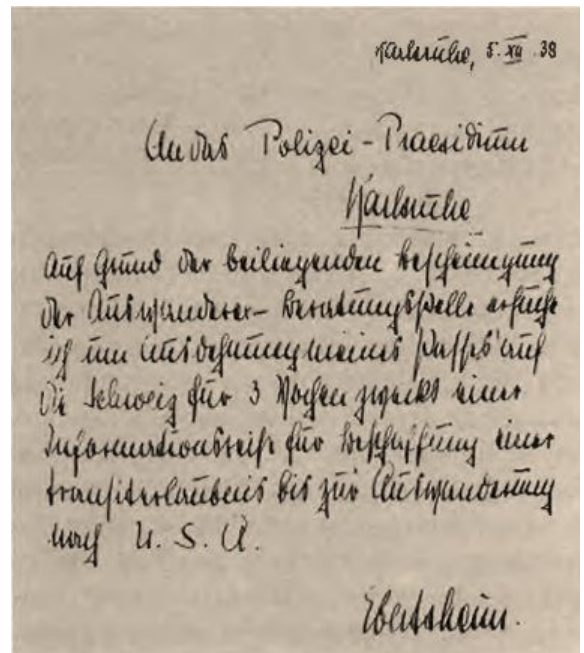 Karlsruhe, 5. XII. 38
An das Polizei-Praesidium
Karlsruhe
Auf Grund der beiliegenden Bescheinigung
der Auswanderer-Beratungsstelle ersuche
ich um Ausdehnung meines Passes auf
die Schweiz für 3 Wochen zwecks einer
Informationsreise für Beschaffung einer
Transiterlaubnis bis zur Auswanderung
nach U. S. A.
Ebertsheim.